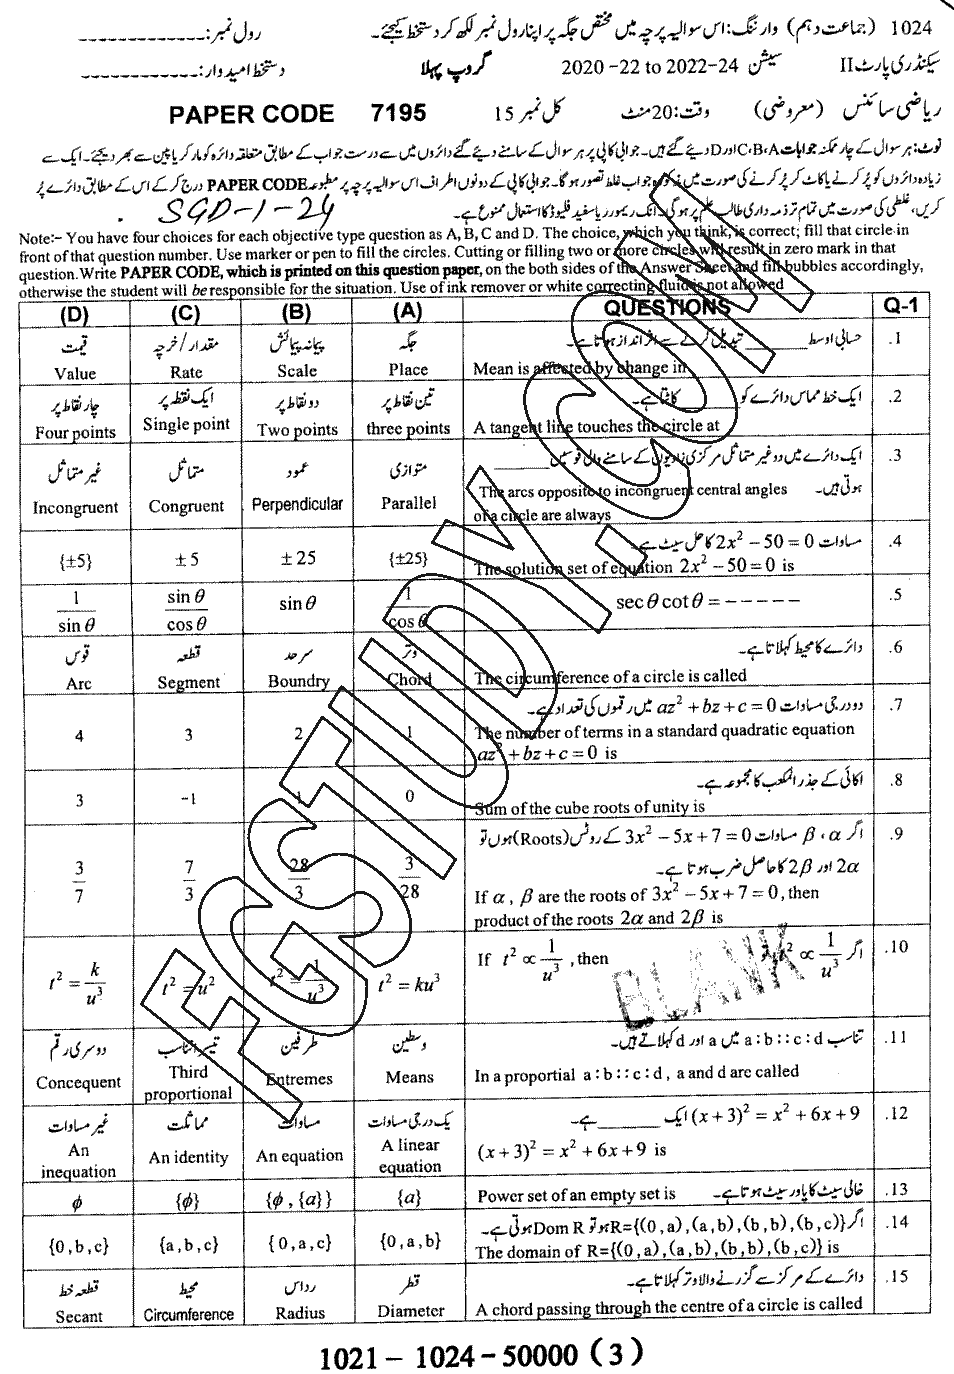 1024 (جماعت دہم) وارننگ: اس سوالیہ پرچہ میں مختص جگہ پر اپنا رول نمبر لکھ کر دستخط کیجئے۔ رول نمبر: _____________
سیکنڈری پارٹ II سیشن 2020 -22 to 2022-24 گروپ پہلا دستخط امیدوار: ____________
ریاضی سائنس (معروضی) وقت: 20 منٹ کل نمبر 15 PAPER CODE 7195
نوٹ:۔ ہر سوال کے چار ممکنہ جوابات C،B،A اور D دیئے گئے ہیں۔ جوابی کاپی پر ہر سوال کے سامنے دیئے گئے دائروں میں سے درست جواب کے مطابق متعلقہ دائرہ کو مارکر یا پین سے بھر دیجئے۔ ایک سے
زیادہ دائروں کو پُر کرنے یا کاٹ کر پُر کرنے کی صورت میں مذکورہ جواب غلط تصور ہوگا۔ جوابی کاپی کے دونوں اطراف اس سوالیہ پرچہ پر مطبوعہ PAPER CODE درج کر کے اس کے مطابق دائرے پُر
کریں، غلطی کی صورت میں تمام تر ذمہ داری طالب علم پر ہوگی۔ انک ریموور یا سفید فلیوڈ کا استعمال ممنوع ہے۔ SGD-1-24
Note:- You have four choices for each objective type question as A, B, C and D. The choice, which you think, is correct; fill that circle in
front of that question number. Use marker or pen to fill the circles. Cutting or filling two or more circles will result in zero mark in that
question. Write PAPER CODE, which is printed on this question paper, on the both sides of the Answer Sheet and fill bubbles accordingly,
otherwise the student will be responsible for the situation. Use of ink remover or white correcting fluid is not allowed
(D) (C) (B) (A) QUESTIONS Q-1
قیمت مقدار/خرچہ پیمانہ پیمائش جگہ حسابی اوسط ______ تبدیل کرنے سے اثر انداز ہوتا ہے۔ .1
Value Rate Scale Place Mean is affected by change in
چار نقاط پر ایک نقطہ پر دو نقاط پر تین نقاط پر ایک خط مماس دائرے کو ______ کاٹتا ہے۔ .2
Four points Single point Two points three points A tangent line touches the circle at
غیر متماثل متماثل عمود متوازی ایک دائرے میں دو غیر متماثل مرکزی زاویوں کے سامنے والی قوسیں ______ .3
ہوتی ہیں۔
Incongruent Congruent Perpendicular Parallel The arcs opposite to incongruent central angles
of a circle are always
مساوات 2x² − 50 = 0 کا حل سیٹ ہے۔ .4
{±5} ±5 ±25 {±25} The solution set of equation 2x² − 50 = 0 is
1/sin θ sin θ/cos θ sin θ 1/cos θ sec θ cot θ = − − − − − .5
قوس قطعہ سرحد وتر دائرے کا محیط کہلاتا ہے۔ .6
Arc Segment Boundry Chord The circumference of a circle is called
دو درجی مساوات az² + bz + c = 0 میں رقموں کی تعداد ہے۔ .7
4 3 2 1 The number of terms in a standard quadratic equation
az² + bz + c = 0 is
اکائی کے جذر المکعب کا مجموعہ ہے۔ .8
3 -1 1 0 Sum of the cube roots of unity is
اگر α ، β مساوات 3x² − 5x + 7 = 0 کے روٹس (Roots) ہوں تو .9
2α اور 2β کا حاصل ضرب ہوتا ہے۔
3/7 7/3 28/3 3/28 If α , β are the roots of 3x² − 5x + 7 = 0, then
product of the roots 2α and 2β is
t² = k/u³ t² = u² t² = 1/u³ t² = ku³ If t² ∝ 1/u³ , then اگر t² ∝ 1/u³ .10
BLANK
دوسری رقم تیسرا تناسب طرفین وسطین تناسب a : b : : c : d میں a اور d کہلاتے ہیں۔ .11
Concequent Third proportional Entremes Means In a proportial a : b : : c : d , a and d are called
غیر مساوات مماثلت مساوات یک درجی مساوات (x + 3)² = x² + 6x + 9 ایک ______ ہے۔ .12
An inequation An identity An equation A linear equation (x + 3)² = x² + 6x + 9 is
ϕ {ϕ} {ϕ , {a}} {a} Power set of an empty set is خالی سیٹ کا پاور سیٹ ہوتا ہے۔ .13
اگر R={(0,a),(a,b),(b,b),(b,c)} ہو تو Dom R ہوتی ہے۔ .14
{0,b,c} {a,b,c} {0,a,c} {0,a,b} The domain of R={(0,a),(a,b),(b,b),(b,c)} is
قطعہ خط محیط رداس قطر دائرے کے مرکز سے گزرنے والا وتر کہلاتا ہے۔ .15
Secant Circumference Radius Diameter A chord passing through the centre of a circle is called
1021 – 1024 – 50000 (3)
FGSTUDY.COM